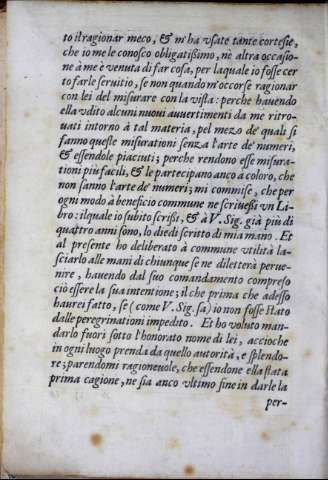 to il ragionar meco, & m'ha vsate tante cortesie,
che io me le conosco obligatißimo, ne altra occasio-
ne à me è venuta di far cosa, per laquale io fosse cer
to farle seruitio, se non quando m'occorse ragionar
con lei del misurare con la vista: perche hauendo
ella vdito alcuni nuoui auuertimenti da me ritro-
uati intorno à tal materia, pel mezo de' quali si
fanno queste misurationi senza l'arte de' numeri,
& essendole piaciuti; perche rendono esse misura-
tioni piu facili, & le partecipano anco à coloro, che
non sanno l'arte de' numeri; mi commise, che per
ogni modo à beneficio commune ne scriueßi vn Li-
bro: ilquale io subito scrißi, & à V. Sig. già piu di
quattro anni sono, lo diedi scritto di mia mano. Et
al presente ho deliberato à commune vtilità la-
sciarlo alle mani di chiunque se ne diletterà perue-
nire, hauendo dal suo comandamento compreso
ciò essere la sua intentione; il che prima che adesso
haurei fatto, se (come V. Sig. sa) io non fosse stato
dalle peregrinationi impedito. Et ho voluto man-
darlo fuori sotto l'honorato nome di lei, accioche
in ogni luogo prenda da quello autorità, e splendo-
re; parendomi ragioneuole, che essendone ella stata
prima cagione, ne sia anco vltimo fine in darle la
per-